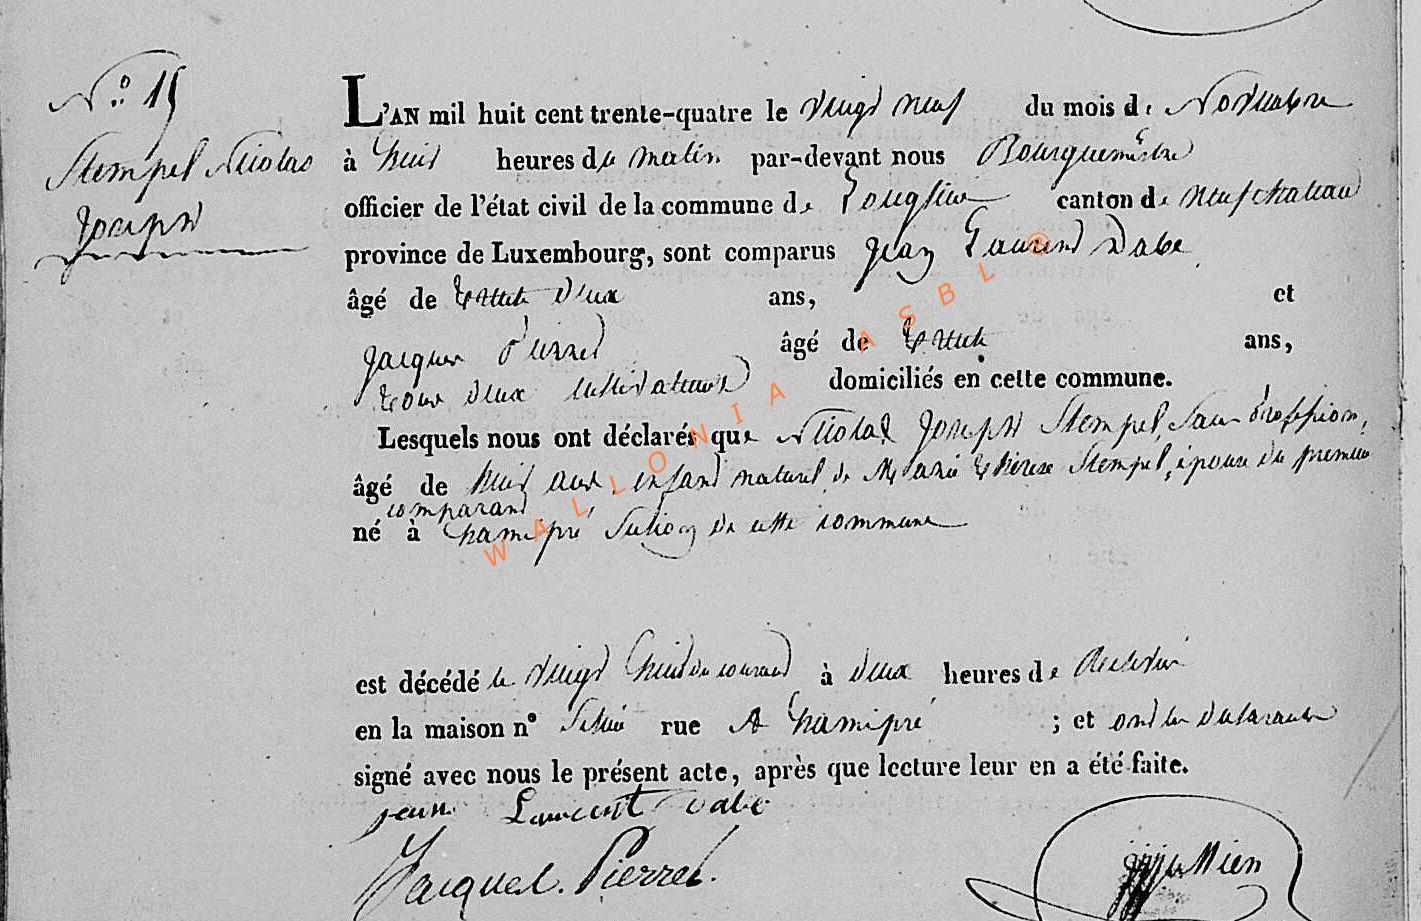 N.º 15
Stempel Nicolas
Joseph
L'AN mil huit cent trente-quatre le vingt neuf du mois de Novembre
à huit heures du matin par-devant nous Bourguemestre
officier de l'état civil de la commune de Longlier canton de neufchateau
province de Luxembourg, sont comparus Jean Laurent Dabe
âgé de trente deux ans, et
Jacques Pierret âgé de trente ans,
tous deux cultivateurs domiciliés en cette commune.
Lesquels nous ont déclarés que Nicolas Joseph Stempel, sans profession,
âgé de huit ans, enfant naturel de Marie thérèse Stempel, épouse du premier
comparant
né à hamipré Section de cette commune
est décédé le vingt huit du courant à deux heures de
en la maison nº rue A hamipré ; et ont les déclarants
signé avec nous le présent acte, après que lecture leur en a été faite.
jean Laurent dabe
Jacques Pierret
WALLONIA ASBL ®